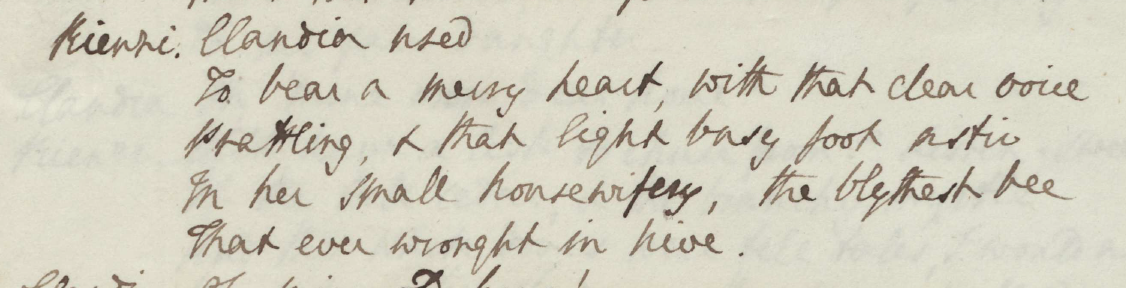 Rienzi. Claudia used
To bear a merry heart, with that clear voice
Prattling, & that light busy foot astir
In her small housewifery, the blythest bee
That ever wrought in hive.